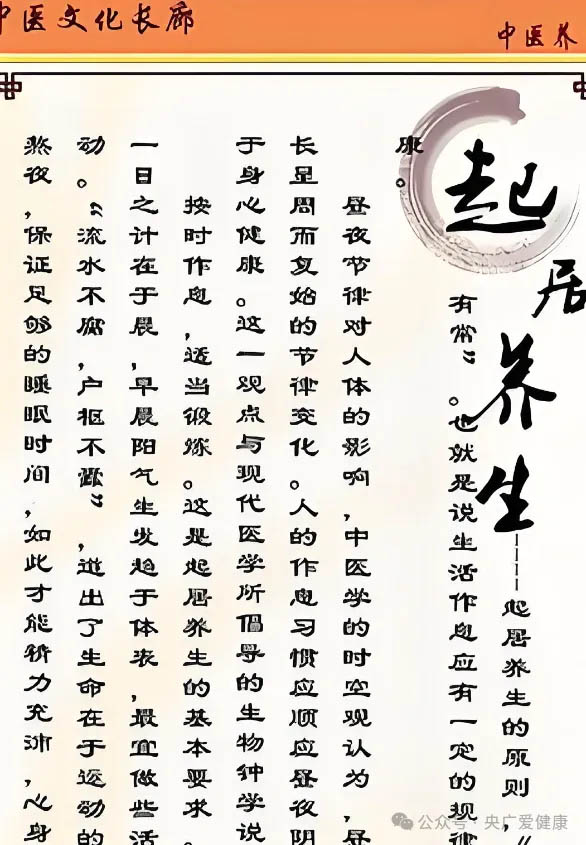 中医文化长廊
中医养
起居养生
----起居养生的原则，“
有常”。也就是说生活作息应有一定的规律
康。
昼夜节律对人体的影响，中医学的时空观认为，昼
长是周而复始的节律变化。人的作息习惯应顺应昼夜阴
于身心健康。这一观点与现代医学所倡导的生物钟学说
按时作息，适当锻炼。这是起居养生的基本要求。
一日之计在于晨，早晨阳气生发趋于体表，最宜做些活
动。“流水不腐，户枢不蠹”，道出了生命在于运动的
熬夜，保证足够的睡眠时间，如此才能精力充沛，心身
公众号·央广爱健康